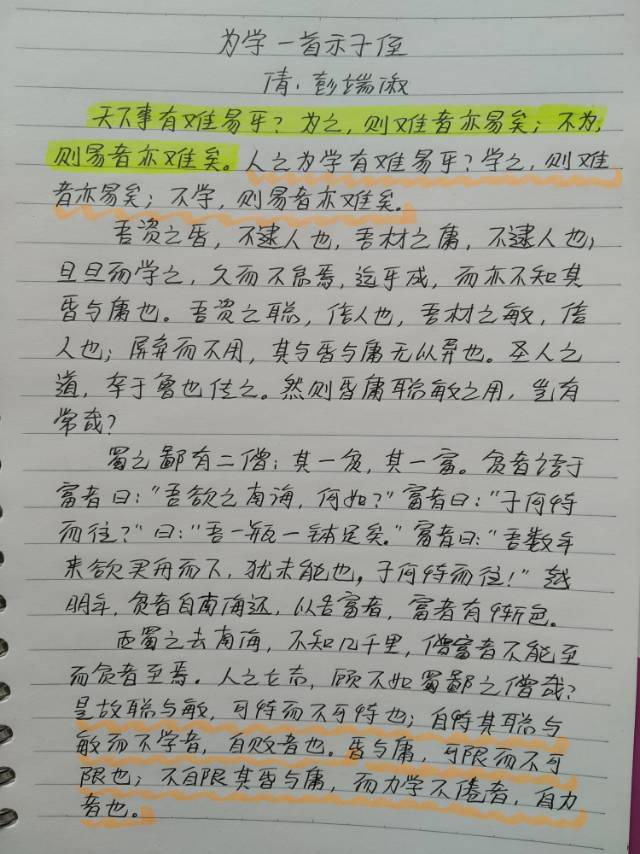 为学一首示子侄
清·彭端淑
天下事有难易乎？为之，则难者亦易矣；不为，
则易者亦难矣。人之为学有难易乎？学之，则难
者亦易矣；不学，则易者亦难矣。
吾资之昏，不逮人也，吾材之庸，不逮人也；
旦旦而学之，久而不怠焉，迄乎成，而亦不知其
昏与庸也。吾资之聪，倍人也，吾材之敏，倍
人也；屏弃而不用，其与昏与庸无以异也。圣人之
道，卒于鲁也传之。然则昏庸聪敏之用，岂有
常哉？
蜀之鄙有二僧：其一贫，其一富。贫者语于
富者曰：“吾欲之南海，何如？”富者曰：“子何恃
而往？”曰：“吾一瓶一钵足矣。”富者曰：“吾数年
来欲买舟而下，犹未能也，子何恃而往！”越
明年，贫者自南海还，以告富者，富者有惭色。
西蜀之去南海，不知几千里，僧富者不能至
而贫者至焉。人之立志，顾不如蜀鄙之僧哉？
是故聪与敏，可恃而不可恃也；自恃其聪与
敏而不学者，自败者也。昏与庸，可限而不可
限也；不自限其昏与庸，而力学不倦者，自力
者也。